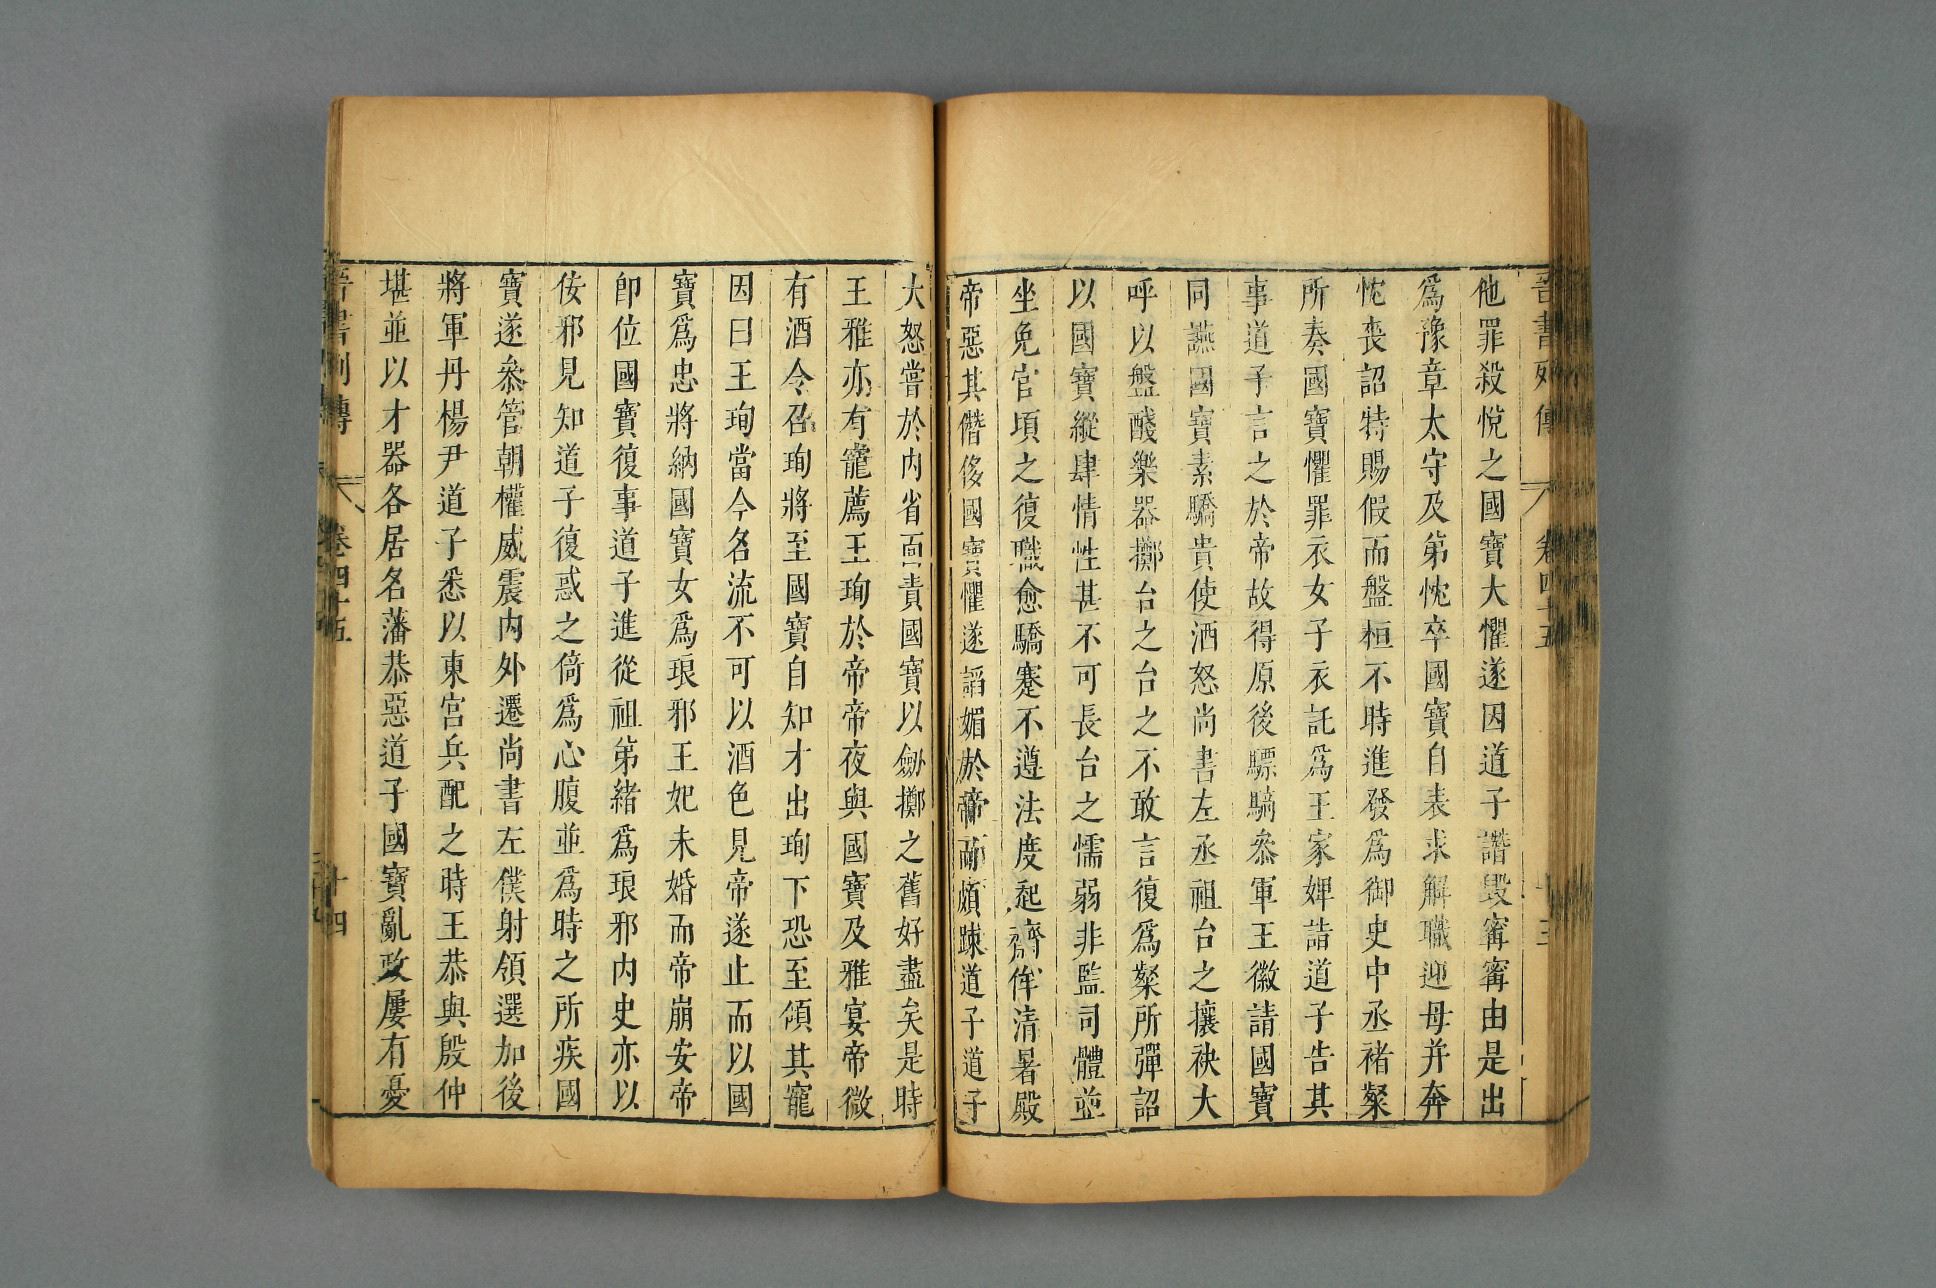 晉書列傳 卷四十五 十三
他罪殺悅之國寶大懼遂因道子譖毀甯甯由是出
爲豫章太守及弟忱卒國寶自表求解職迎母并奔
忱喪詔特賜假而盤桓不時進發爲御史中丞褚粲
所奏國寶懼罪衣女子衣託爲王家婢詣道子告其
事道子言之於帝故得原後驃騎參軍王徽請國寶
同讌國寶素驕貴使酒怒尚書左丞祖台之攘袂大
呼以盤醆樂器擲台之台之不敢言復爲粲所彈詔
以國寶縱肆情性甚不可長台之懦弱非監司體並
坐免官頃之復職愈驕蹇不遵法度起齋侔清暑殿
帝惡其僭侈國寶懼遂諂媚於帝而頗踈道子道子
大怒嘗於内省面責國寶以劒擲之舊好盡矣是時
王雅亦有寵薦王珣於帝帝夜與國寶及雅宴帝微
有酒令召珣將至國寶自知才出珣下恐至傾其寵
因曰王珣當今名流不可以酒色見帝遂止而以國
寶爲忠將納國寶女爲琅邪王妃未婚而帝崩安帝
即位國寶復事道子進從祖弟緒爲琅邪内史亦以
佞邪見知道子復惑之倚爲心腹並爲時之所疾國
寶遂參管朝權威震内外遷尚書左僕射領選加後
將軍丹楊尹道子悉以東宮兵配之時王恭與殷仲
堪並以才器各居名藩恭惡道子國寶亂政屢有憂
晉書列傳 卷四十五 十四